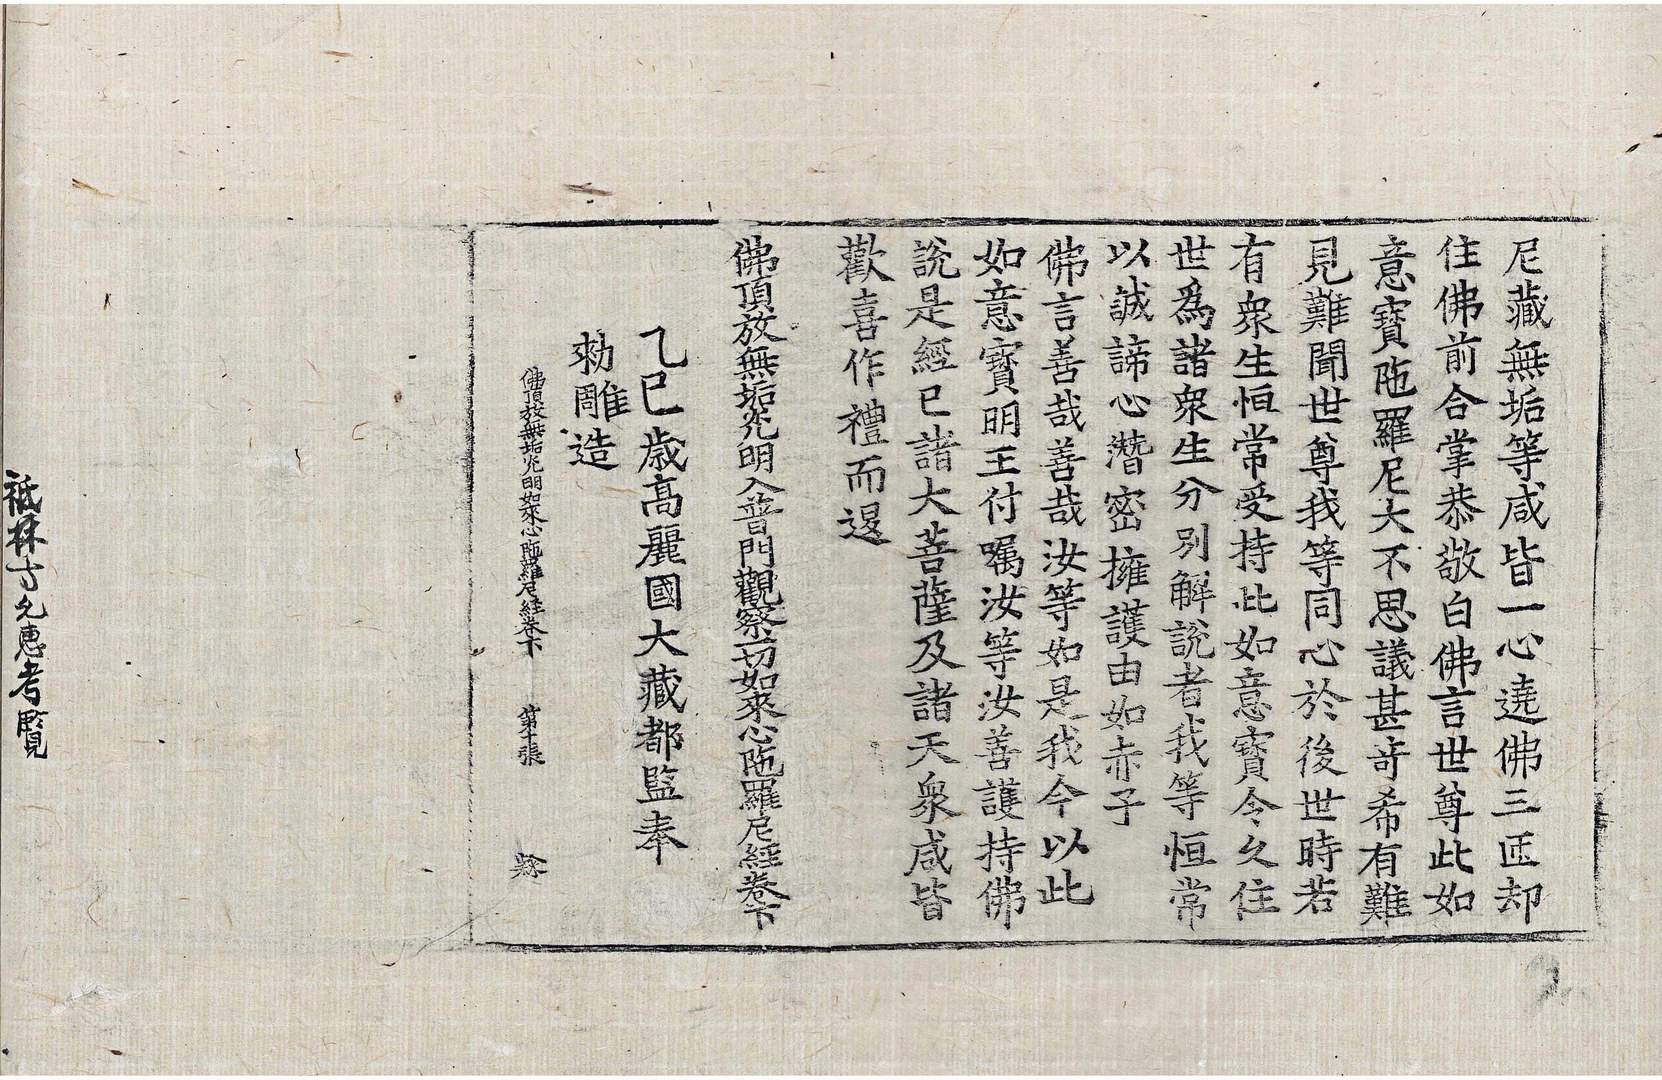 尼藏無垢等咸皆一心遶佛三匝却
住佛前合掌恭敬白佛言世尊此如
意寶陁羅尼大不思議甚竒希有難
見難聞世尊我等同心於後世時若
有衆生恒常受持此如意寶令久住
世爲諸衆生分別解說者我等恒常
以誠諦心潛密擁護由如赤子
佛言善哉善哉汝等如是我今以此
如意寶明王付囑汝等汝善護持佛
說是經已諸大菩薩及諸天衆咸皆
歡喜作禮而退
佛頂放無垢光明入普門觀察一切如來心陁羅尼經卷下
乙巳歲高麗國大藏都監奉
勑雕造
佛頂放無垢光明如來心陁羅尼經卷下 第十張
祇林寺允惠考覧